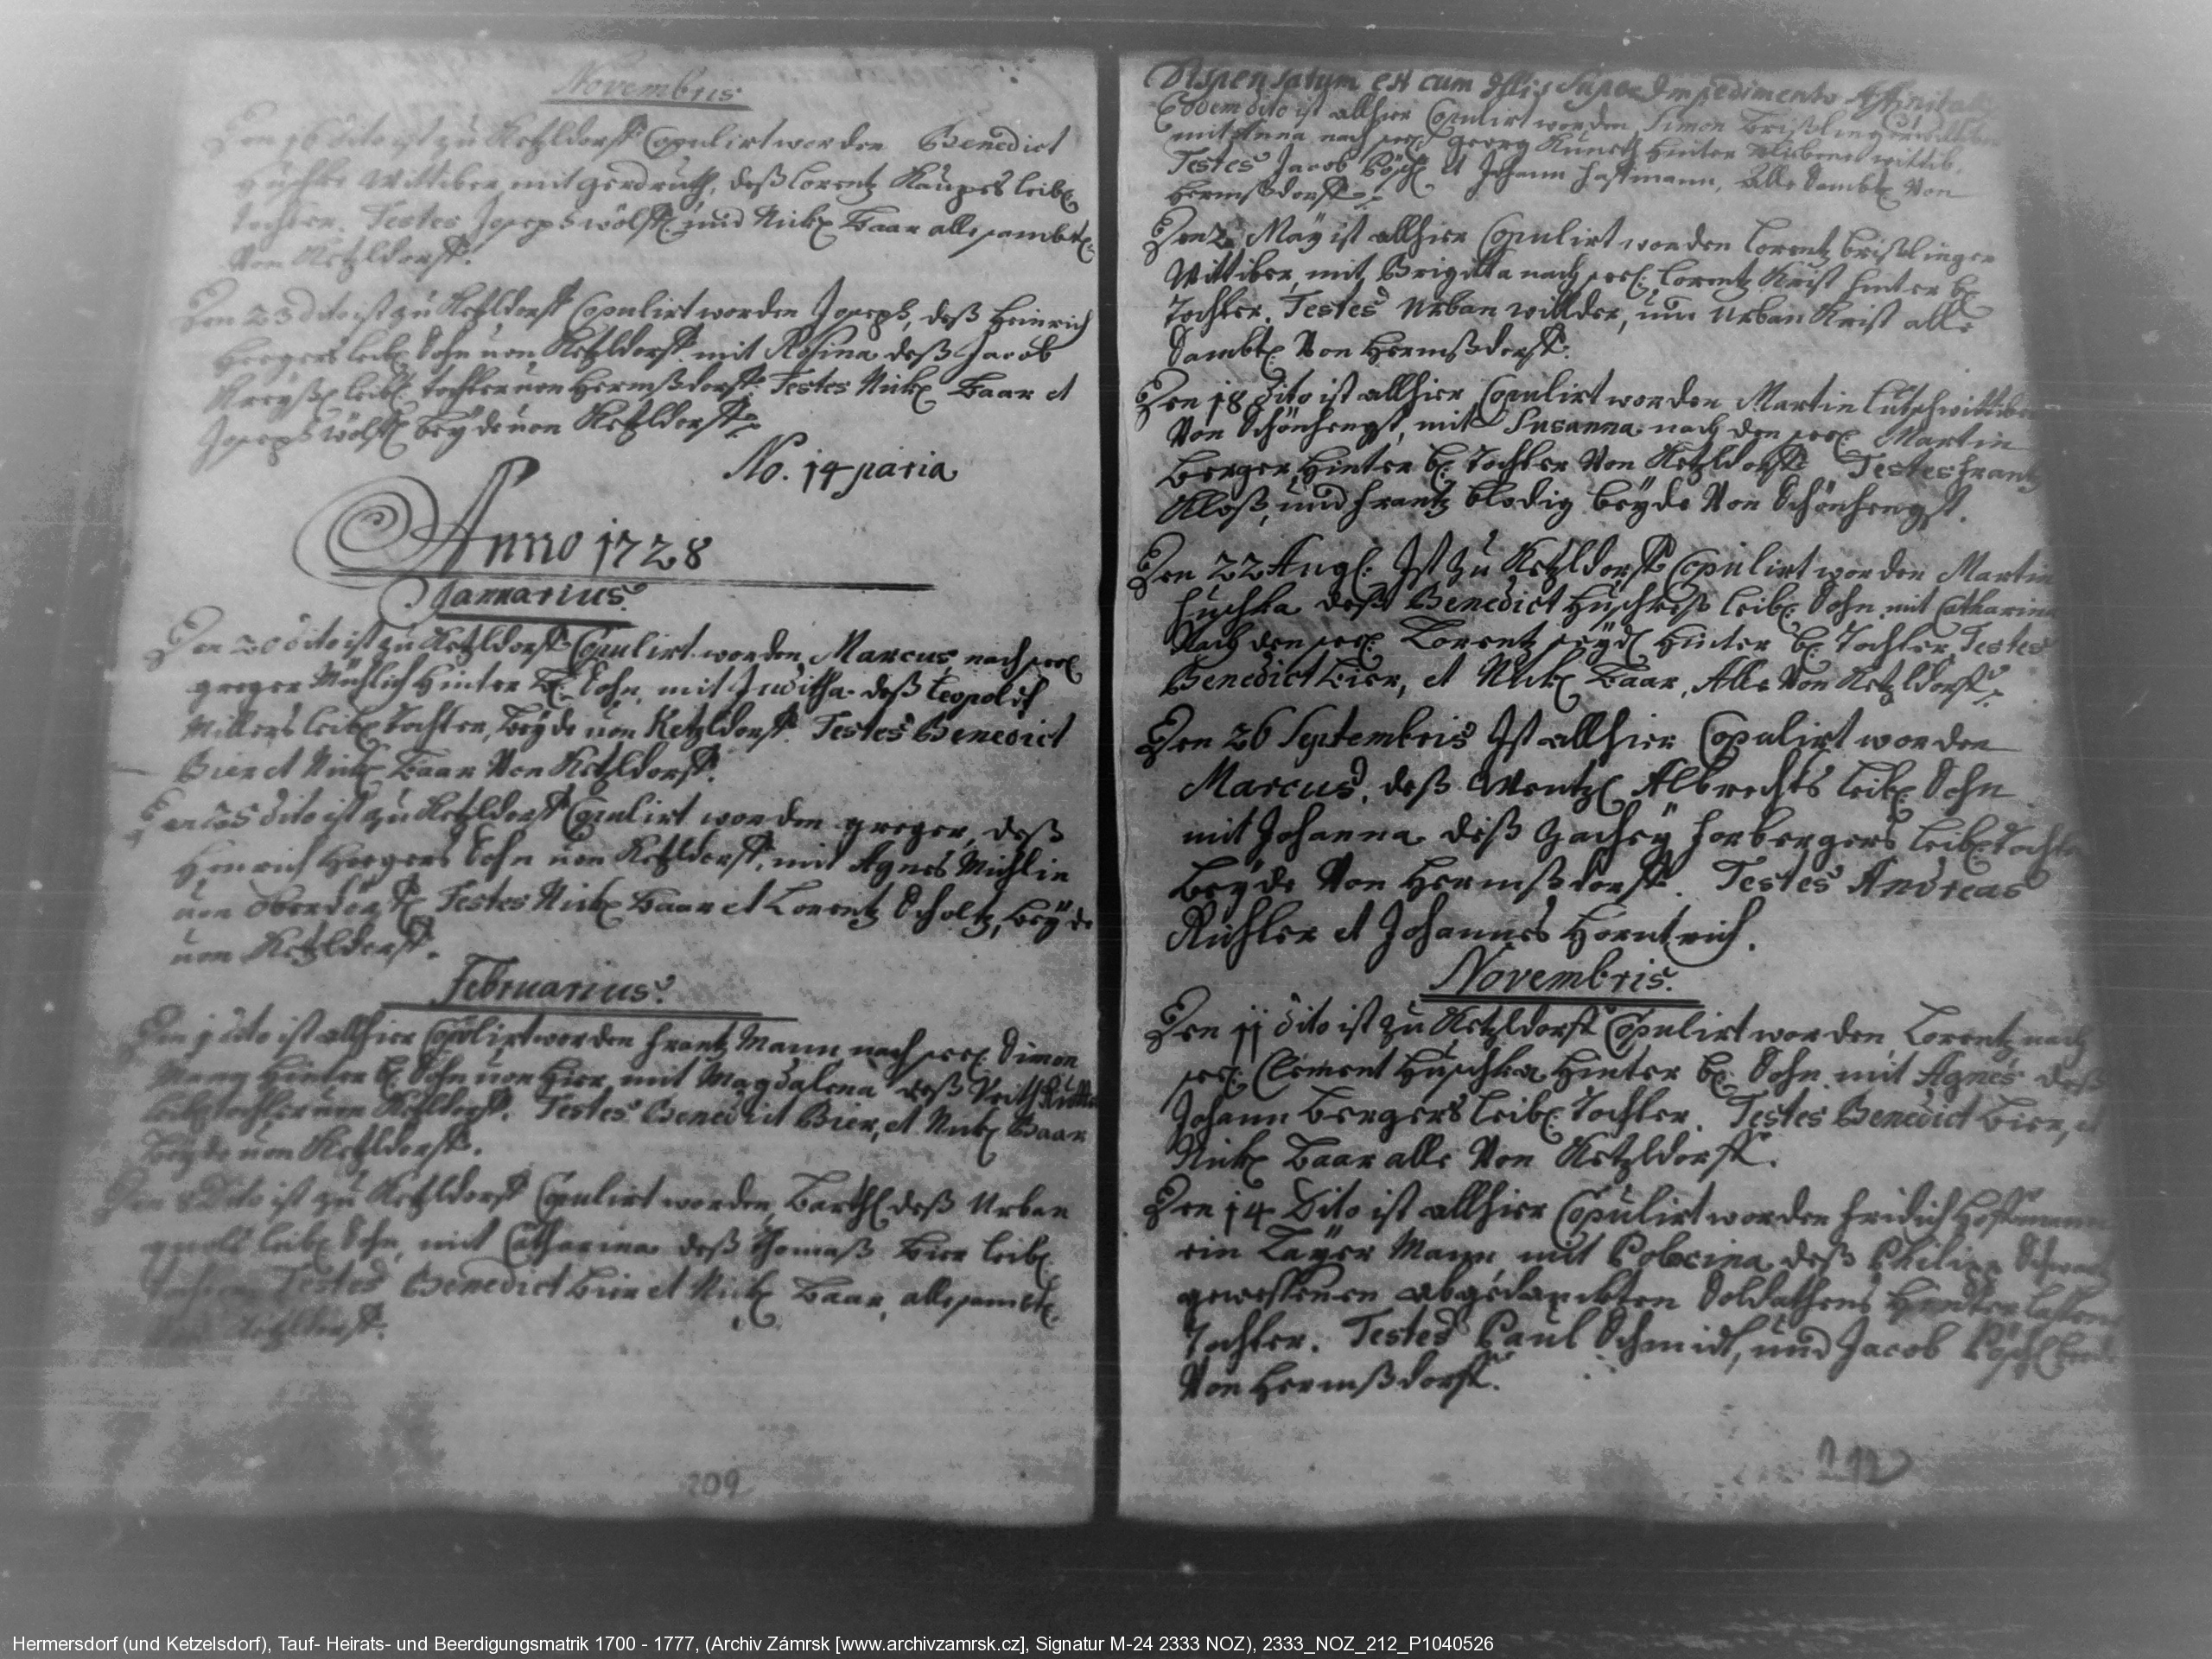 Novembris
Den 16 dito ist zu Ketzldorff Copulirt worden Benedict
Huschka Wittiber, mit Gerdruth, deß Lorentz leibl:
tochter. Testes Joseph Wölffl und Nickl Baar alle sambtl:
Von Ketzldorff.
Den 23 Dito ist zu Ketzldorff Copulirt worden Joseph, deß Heinrich
Heegers leibl: Sohn von Ketzldorff mit Rosina deß Jacob
leibl: tochter von Hermßdorff. Testes Nickl Baar et
Joseph Wölffl beÿde von Ketzldorff.
No. 14 paria
Anno 1728
Januarius.
Den 20 dito ist zu Ketzldorff Copulirt worden Marcus nach seel:
greger Michlich Hinter bl: Sohn, mit Juditha deß Leopoldt
Millers leibl: tochter, beÿde von Ketzldorff. Testes Benedict
Bier et Nickl Baar Von Ketzldorff.
Den 25 dito ist zu Ketzldorff Copulirt worden greger, deß
Henrich Heegers Sohn von Ketzldorff, mit Agnes Michlin
von Testes Nickl Baar et Lorentz Scholtz, beÿde
von Ketzldorff.
Februarius.
Den 1 dito ist allhier Copulirt worden Frantz Mann nach seel: Simon
Mann Hinter bl: Sohn von hier, mit Magdalena deß Veith
leibl: tochter von Ketzldorff. Testes Benedict Bier, et Nickl Baar
beÿde von Ketzldorff.
Den 8 Dito ist zu Ketzldorff Copulirt worden, Barthl deß Urban
leibl: Sohn, mit Catharina deß Thomaß Bier leibl:
tochter, Testes Benedict Bier et Nickl Baar, alle sambtl:
Von Ketzldorff.
209
Dispensatum est cum Super Impedimento Affinitatis
Eodem dito ist allhier Copulirt worden, Simon Brißlinger Wittiber
mit Anna nach seel: Georg Kuneth Hinter wittib.
Testes Jacob Pöschl et Johann Hastmann, Alle Sambtl: Von
Hermßdorff.
Den 2 Maÿ ist allhier Copulirt worden Lorentz Brißlinger
Wittiber, mit Brigitta nach seel: Lorentz Krist Hinter bl:
Tochter. Testes Urban Willder, und Urban Krist alle
Sambtl: Von Hermßdorff.
Den 18 Dito ist allhier Copulirt worden Martin Lutsch wittiber
Von Schönhengst, mit Susanna nach den seel: Martin
Berger, Hinter bl: Tochter Von Ketzldorff. Testes Frantz
Kloß, und Frantz Blodig beÿde Von Schönhengst.
Den 22 Aug: Ist zu Ketzldorff Copulirt worden Martin
Huschka deß Benedict Huschkeß leibl: Sohn mit Catharina
Nach den seel: Lorentz Seÿdl Hinter bl: Tochter, Testes
Benedict Bier, et Nickl Baar, Alle Von Ketzldorff.
Den 26 Septembris Ist allhier Copulirt worden
Marcus, deß Wentzl Albrechts leibl: Sohn
mit Johanna deß Zacheÿ Forbergers leibl: Tochter
Beÿde Von Hermßdorff. Testes Andreas
Richter et Johannes Horntrich.
Novembris.
Den 11 dito ist zu Ketzldorff Copulirt worden Lorentz nach
seel: Clement Huschka Hinter bl: Sohn, mit Agnes deß
Johann Bergers leibl: Tochter. Testes Benedict Bier, et
Nickl Baar alle Von Ketzldorff.
Den 14 Dito ist allhier Copulirt worden Fridich Hoffmann
ein Mann, mit Polecina deß Philipp
gewessenen abgedanckten Soldathens Hinterlassene
Tochter. Testes Paul Schmidt, und Jacob Pöschl beede
Von Hermßdorff.
212
Hermersdorf (und Ketzelsdorf), Tauf- Heirats- und Beerdigungsmatrik 1700 - 1777, (Archiv Zámrsk [www.archivzamrsk.cz], Signatur M-24 2333 NOZ), 2333_NOZ_212_P1040526